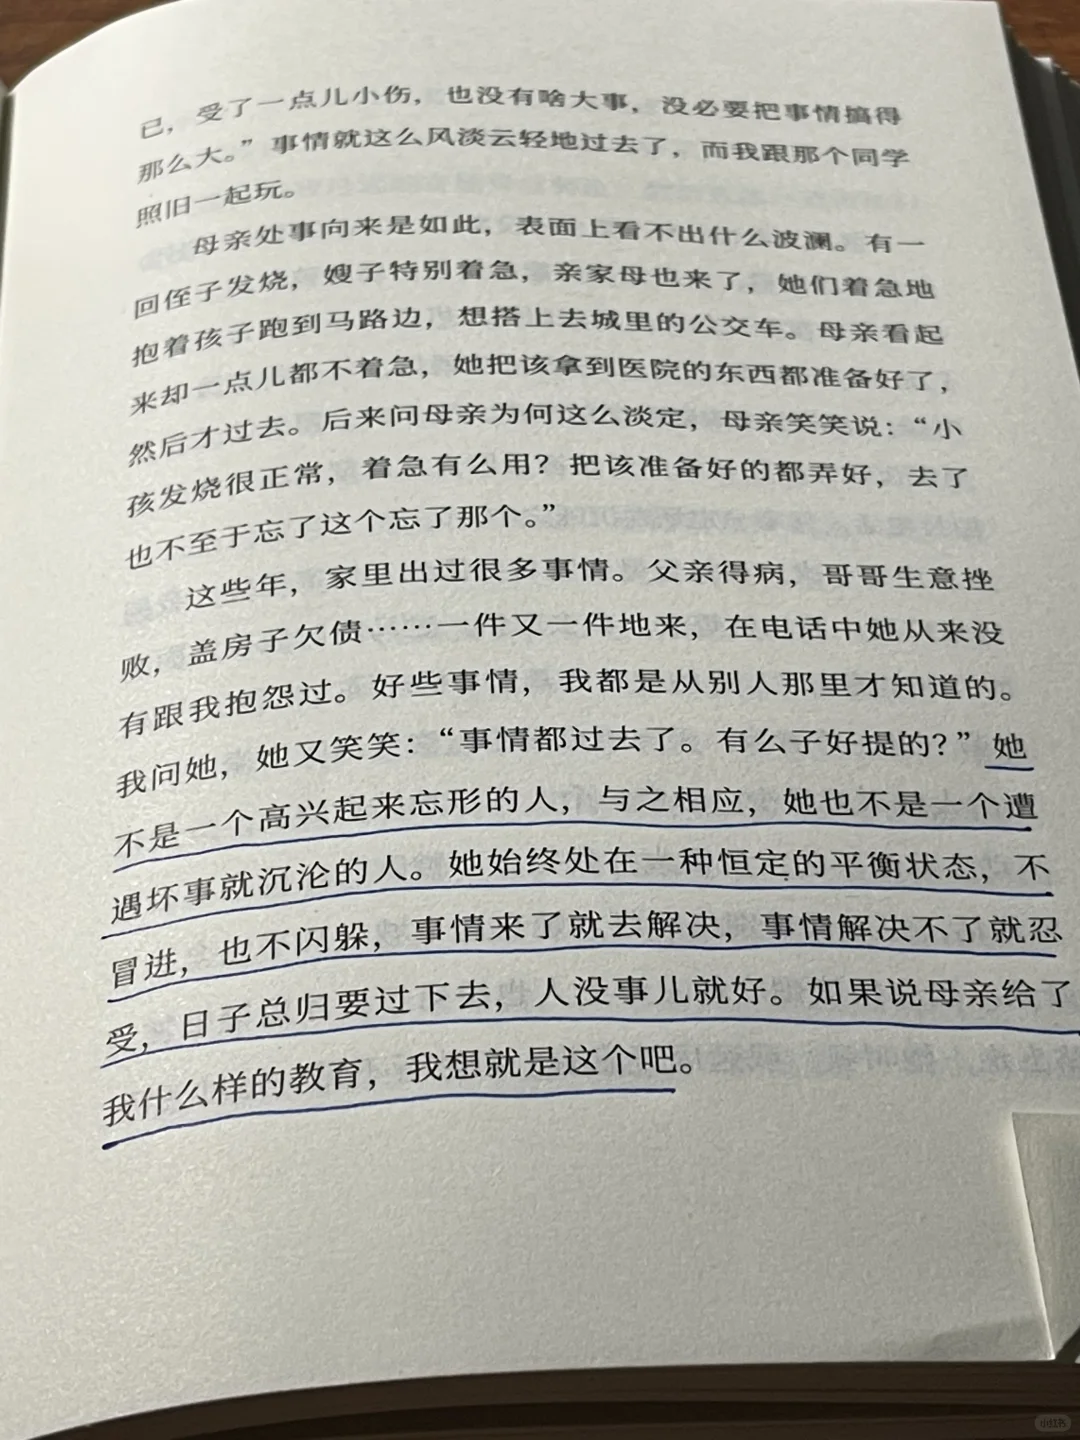 已，受了一点儿小伤，也没有啥大事，没必要把事情搞得
那么大。”事情就这么风淡云轻地过去了，而我跟那个同学
照旧一起玩。
母亲处事向来是如此，表面上看不出什么波澜。有一
回侄子发烧，嫂子特别着急，亲家母也来了，她们着急地
抱着孩子跑到马路边，想搭上去城里的公交车。母亲看起
来却一点儿都不着急，她把该拿到医院的东西都准备好了，
然后才过去。后来问母亲为何这么淡定，母亲笑笑说：“小
孩发烧很正常，着急有么用？把该准备好的都弄好，去了
也不至于忘了这个忘了那个。”
这些年，家里出过很多事情。父亲得病，哥哥生意挫
败，盖房子欠债……一件又一件地来，在电话中她从来没
有跟我抱怨过。好些事情，我都是从别人那里才知道的。
我问她，她又笑笑：“事情都过去了。有么子好提的？”她
不是一个高兴起来忘形的人，与之相应，她也不是一个遭
遇坏事就沉沦的人。她始终处在一种恒定的平衡状态，不
冒进，也不闪躲，事情来了就去解决，事情解决不了就忍
受，日子总归要过下去，人没事儿就好。如果说母亲给了
我什么样的教育，我想就是这个吧。
小红书